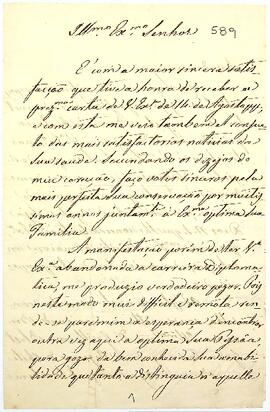 Illmo Exmo Senhor
589
É com a maior sincera satis-
fação que tive a honra de receber a
prezma carta de V. Exa de 14 de Agosto
e com esta me veio tambem o comple-
to das mais satisfactorias noticias da
sua saude. Secundando os dezejos do
meu coração, faço votos sinceros pela
mais perfeita sua conservação por muitis-
simos annos juntamte á Exma optima sua
Familia.
A manifestação porem de ter Va
Exa abandonado a carreira Diploma-
tica, me produzio verdadeiro pezar. Pois
neste modo mui difficil e remota ren-
de-se para mim a esperança d'encontrar
outra vez aqui a optima Sua Pessôa,
para gozar da bem conhecida Sua amabi-
lidade que tanto a distinguia n'aquelle
1